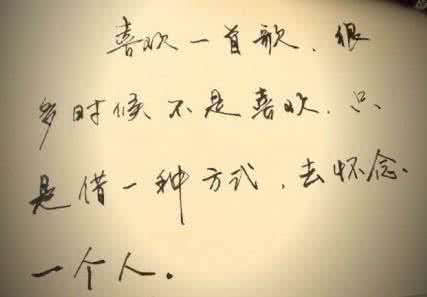 喜欢一首歌、很
多时候不是喜欢、只
是借一种方式、去怀念
一个人。